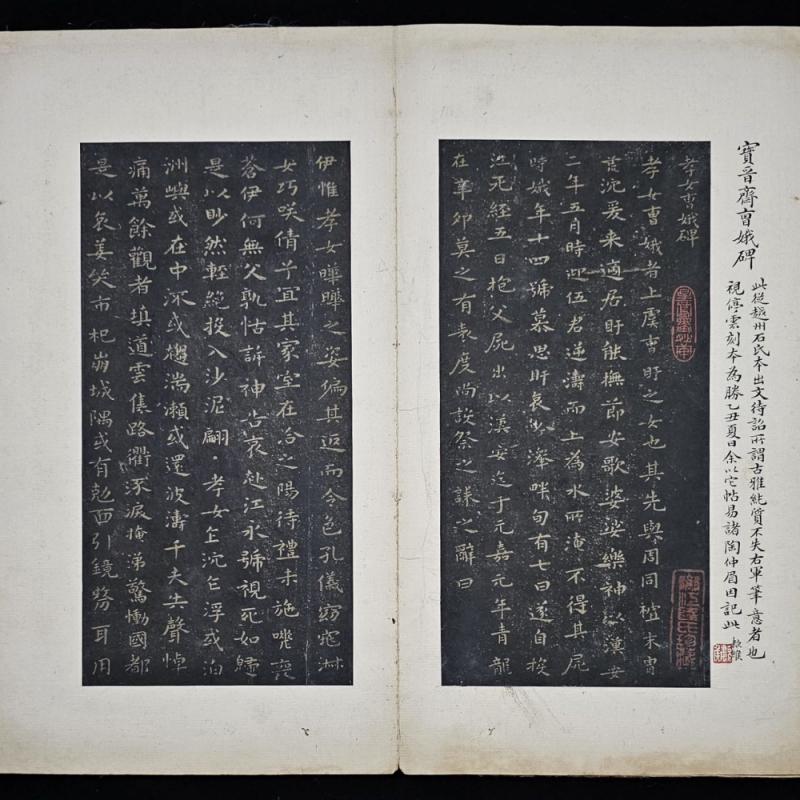 寶晉齋曹娥碑
此從越州石氏本出文待詔所謂古雅純質不失右軍筆意者也
視停雲刻本為勝乙丑夏日余以它帖易諸陶仲眉因記此
孝女曹娥碑
孝女曹娥者上虞曹盱之女也其先與周同祖末胄
荒沉爰来適居盱能撫節女歌婆娑樂神以漢安
二年五月時迎伍君逆濤而上為水所淹不得其屍
時娥年十四號慕思盱哀吟澤畔旬有七日遂自投
江死經五日抱父屍出以漢安迄于元嘉元年青龍
在辛卯莫之有表度尚設祭之誄之辭曰
伊惟孝女曄曄之姿偏其返而令色孔儀窈窕淋
女巧咲倩兮宜其家室在洽之陽待禮未施嗟喪
蒼伊何無父孰怙訴神告哀赴江永號視死如歸
是以眇然輕絕投入沙泥翩孝女乍沉乍浮或泊
洲嶼或在中流或趨湍瀨或還波濤千夫失聲悼
痛萬餘觀者填道雲集路衢流淚掩涕驚慟國都
是以哀姜哭市杞崩城隅或有剋面引鏡剺耳用